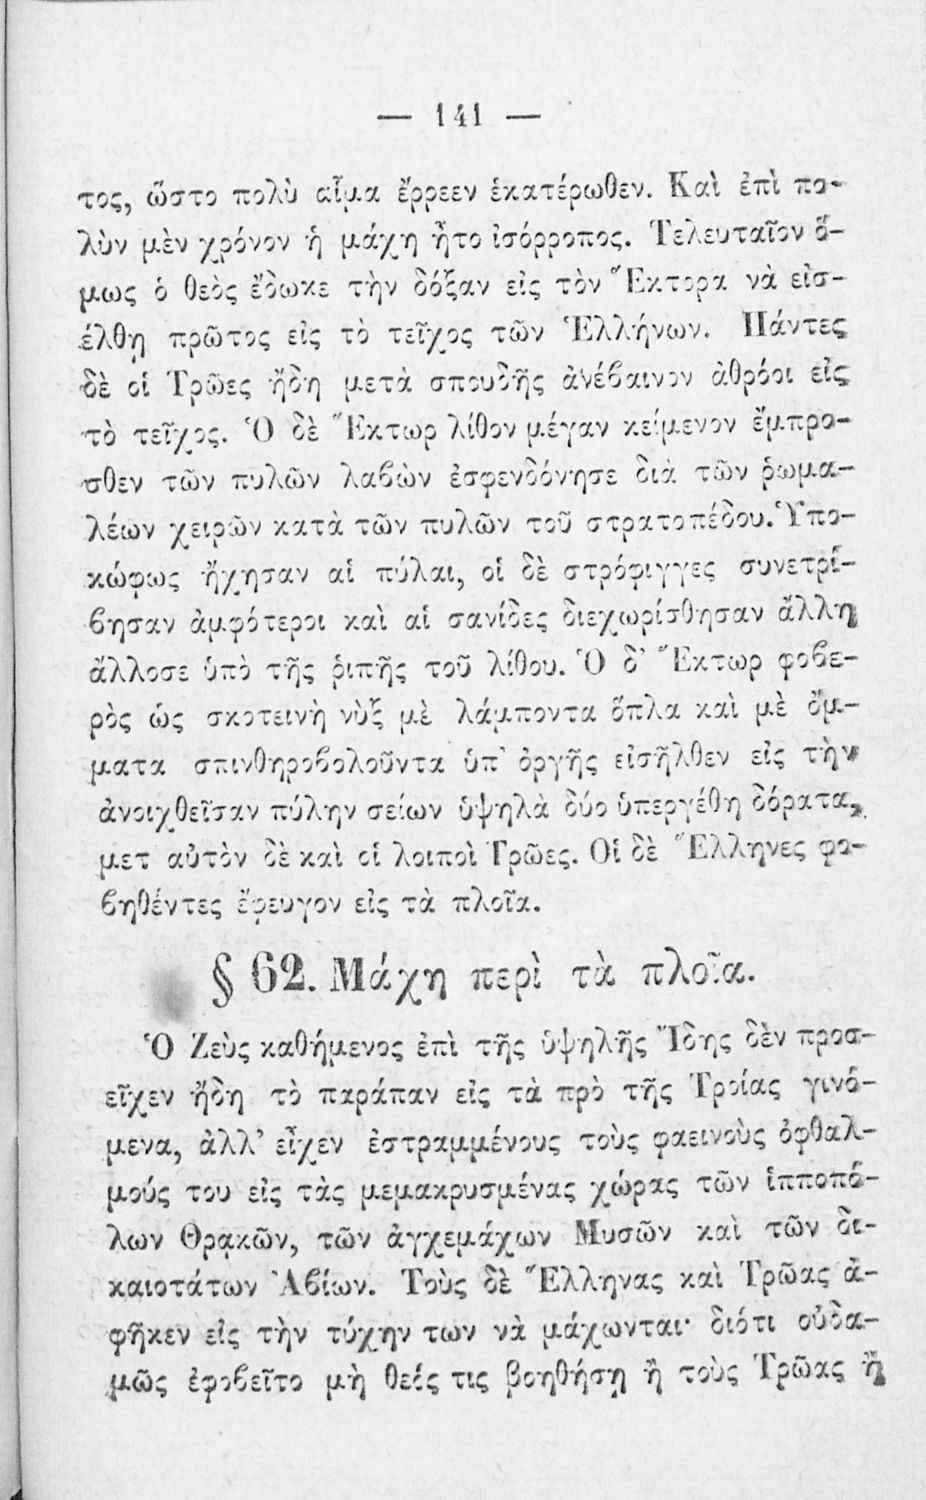 — 141 —
τος, ὥστο πολὺ αἷμα ἔρρεεν ἑκατέρωθεν. Καὶ ἐπὶ πο-
λὺν μὲν χρόνον ἡ μάχη ἦτο ἰσόρροπος. Τελευταῖον ὅ-
μως ὁ θεὸς ἔδωκε τὴν δόξαν εἰς τὸν Ἕκτορα νὰ εἰσ-
έλθῃ πρῶτος εἰς τὸ τεῖχος τῶν Ἑλλήνων. Πάντες
δὲ οἱ Τρῶες ἤδη μετὰ σπουδῆς ἀνέβαινον ἀθρόοι εἰς
τὸ τεῖχος. Ὁ δὲ Ἕκτωρ λίθον μέγαν κείμενον ἔμπρο-
σθεν τῶν πυλῶν λαβὼν ἐσφενδόνησε διὰ τῶν ῥωμα-
λέων χειρῶν κατὰ τῶν πυλῶν τοῦ στρατοπέδου. Ὑπο-
κώφως ἤχησαν αἱ πύλαι, οἱ δὲ στρόφιγγες συνετρί-
βησαν ἀμφότεροι καὶ αἱ σανίδες διεχωρίσθησαν ἄλλη
ἄλλοσε ὑπὸ τῆς ῥιπῆς τοῦ λίθου. Ὁ δ' Ἕκτωρ φοβε-
ρὸς ὡς σκοτεινὴ νὺξ μὲ λάμποντα ὅπλα καὶ μὲ ὄμ-
ματα σπινθηροβολοῦντα ὑπ' ὀργῆς εἰσῆλθεν εἰς τὴν
ἀνοιχθεῖσαν πύλην σείων ὑψηλὰ δύο ὑπεργέθη δόρατα,
μετ αὐτὸν δὲ καὶ οἱ λοιποὶ Τρῶες. Οἱ δὲ Ἕλληνες φο-
βηθέντες ἔφευγον εἰς τὰ πλοῖα.
§ 62. Μάχη περὶ τὰ πλοῖα.
Ὁ Ζεὺς καθήμενος ἐπὶ τῆς ὑψηλῆς Ἴδης δὲν προσ-
εῖχεν ἤδη τὸ παράπαν εἰς τὰ πρὸ τῆς Τροίας γινό-
μενα, ἀλλ' εἶχεν ἐστραμμένους τοὺς φαεινοὺς ὀφθαλ-
μούς του εἰς τὰς μεμακρυσμένας χώρας τῶν ἱπποπό-
λων Θρᾳκῶν, τῶν ἀγχεμάχων Μυσῶν καὶ τῶν δι-
καιοτάτων Ἀβίων. Τοὺς δὲ Ἕλληνας καὶ Τρῶας ἀ-
φῆκεν εἰς τὴν τύχην των νὰ μάχωνται· διότι οὐδα-
μῶς ἐφοβεῖτο μὴ θεός τις βοηθήσῃ ἢ τοὺς Τρῶας ἢ